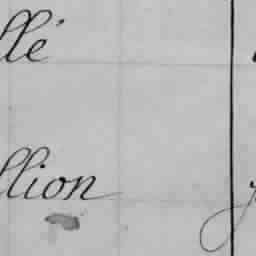 llé
llion